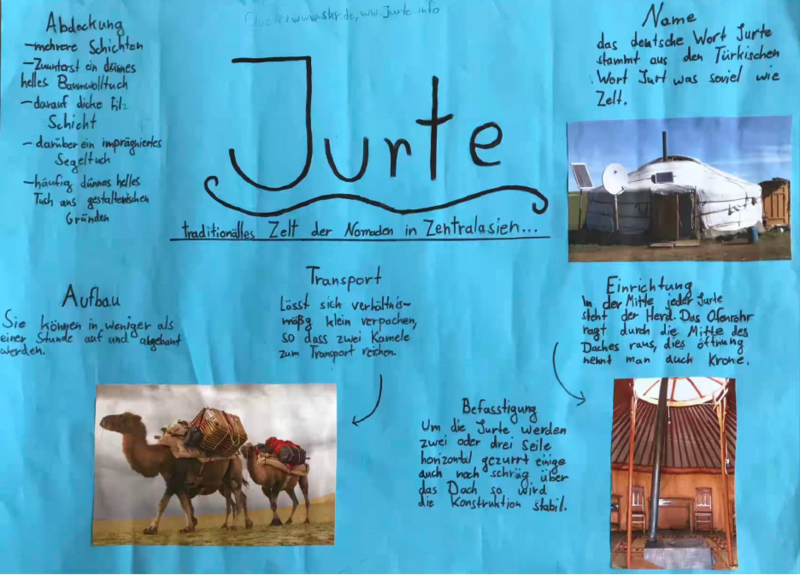 Quelle: www.skr.de, www Jurte.info
Abdeckung
-mehrere Schichten
-Zuunterst ein dünnes
helles Baumwolltuch
-darauf dicke Filz
Schicht
-darüber ein imprägniertes
Segeltuch
-häufig dünnes helles
Tuch aus gestalterischen
Gründen
Jurte
traditionälles Zelt der Nomaden in Zentralasien...
Name
das deutsche Wort Jurte
stammt aus den Türkischen
Wort Jurt was soviel wie
Zelt.
Aufbau
Sie können in weniger als
einer Stunde auf und abgebaut
werden.
Transport
Lässt sich verhältnis-
mäßg klein verpachen,
so dass zwei Kamele
zum Transport reichen.
Einrichtung
In der Mitte jeder Jurte
steht der Herd. Das Ofenrohr
ragt durch die Mitte des
Daches raus, dies öffnung
nennt man auch Krone.
Befasstigung
Um die Jurte werden
zwei oder drei Seile
horizontal gezurrt einige
auch noch schräg über
das Dach so wird
die Konstruktion stabil.